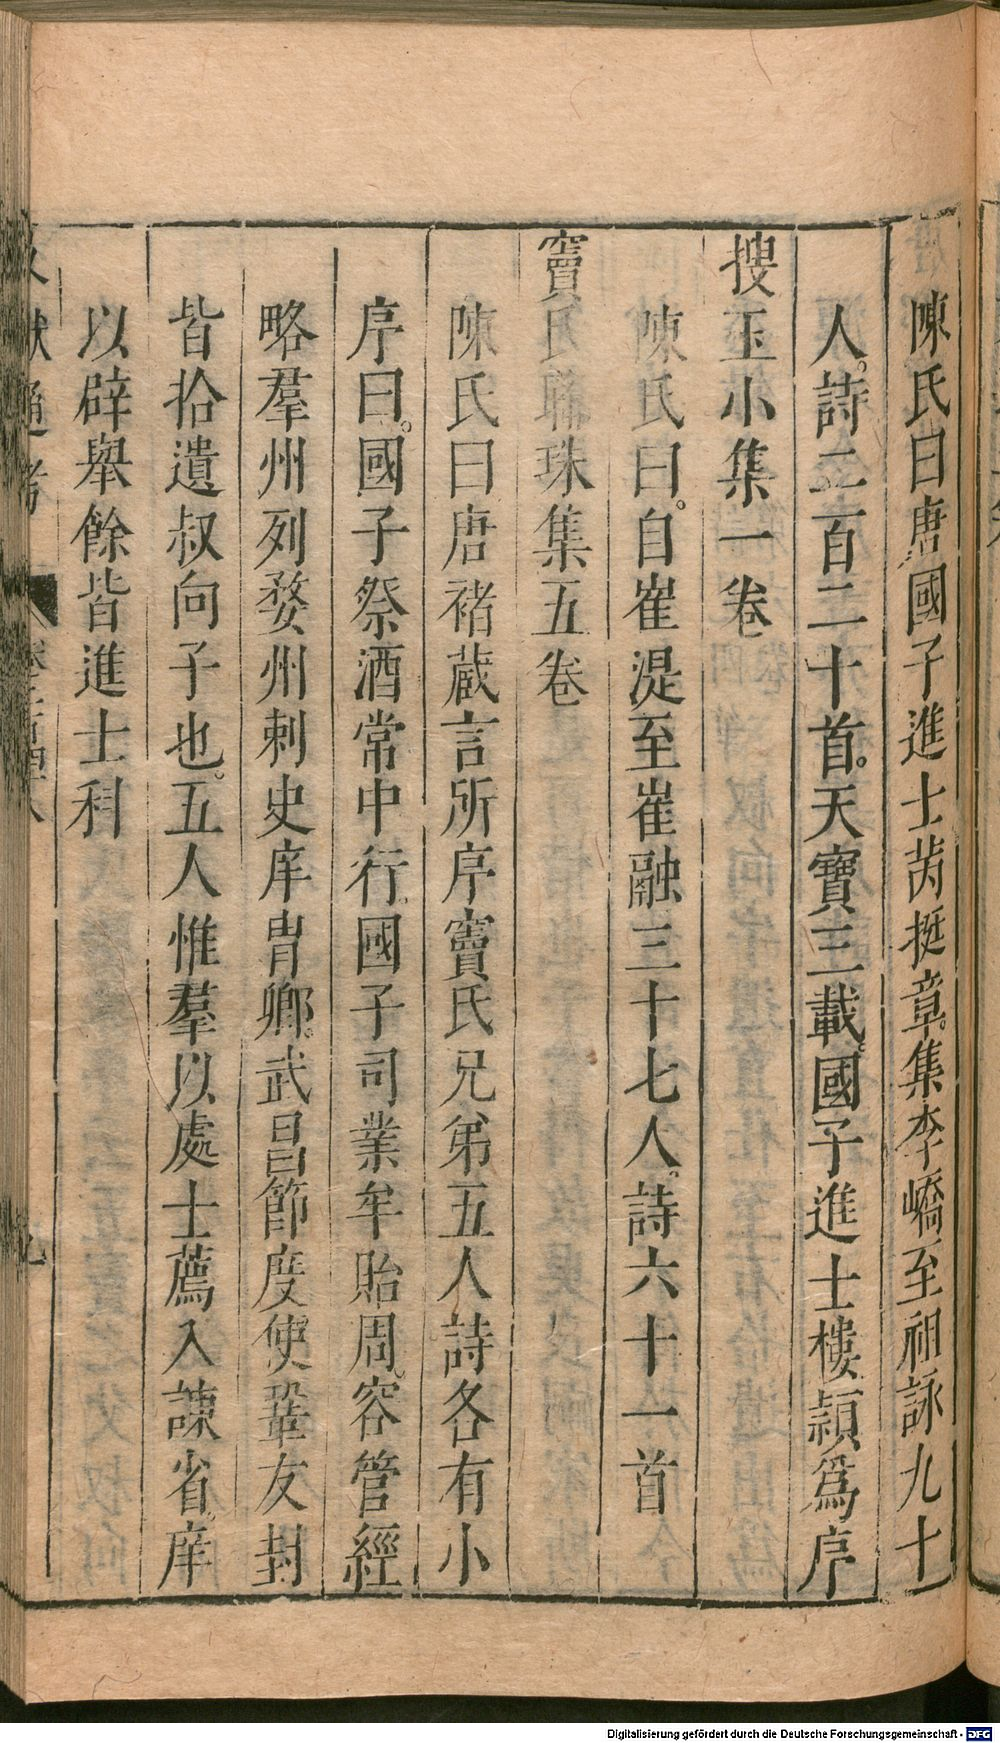 陳氏曰唐國子進士芮挺章集李嶠至祖詠九十
人詩二百二十首天寶三載國子進士樓頴爲序
搜玉小集一卷
陳氏曰自崔湜至崔融三十七人詩六十一首
竇氏聯珠集五卷
陳氏曰唐褚藏言所序竇氏兄弟五人詩各有小
序曰國子祭酒常中行國子司業牟貽周容管經
略羣州列婺州刺史庠胄卿武昌節度使鞏友封
皆拾遺叔向子也五人惟羣以處士薦入諫省庠
以辟舉餘皆進士科
獻通考
九
Digitalisierung gefördert durch die Deutsche Forschungsgemeinschaft - DFG